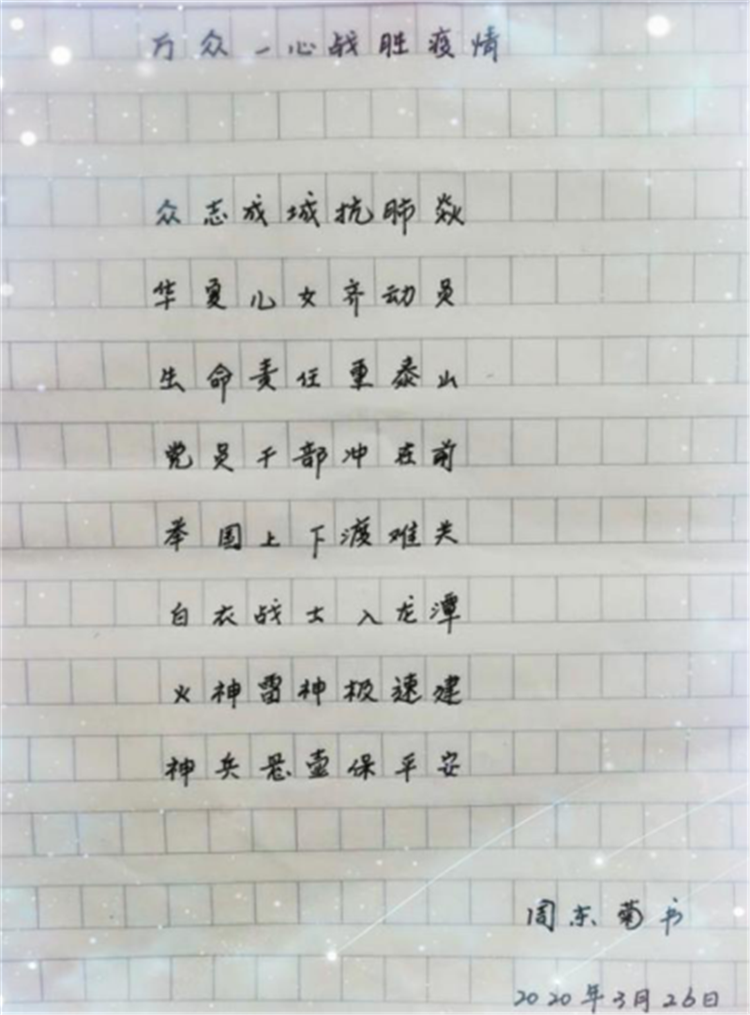 万众一心战胜疫情
众志成城抗肺炎
华夏儿女齐动员
生命责任重泰山
党员干部冲在前
举国上下渡难关
白衣战士入龙潭
火神雷神极速建
神兵悬壶保平安
周东菊书
2020年3月26日